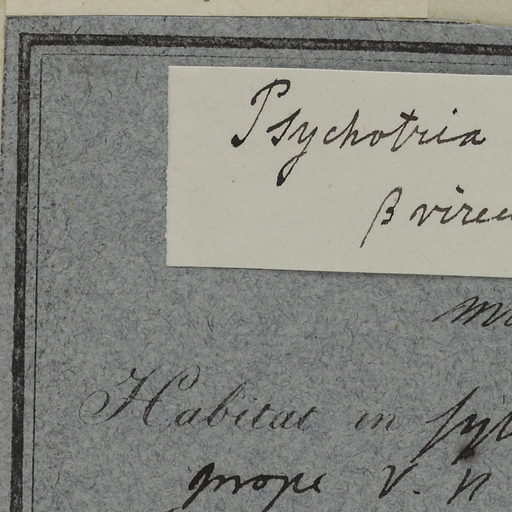 Psychotria
β viree
m
Habitat in syl
prope v. n